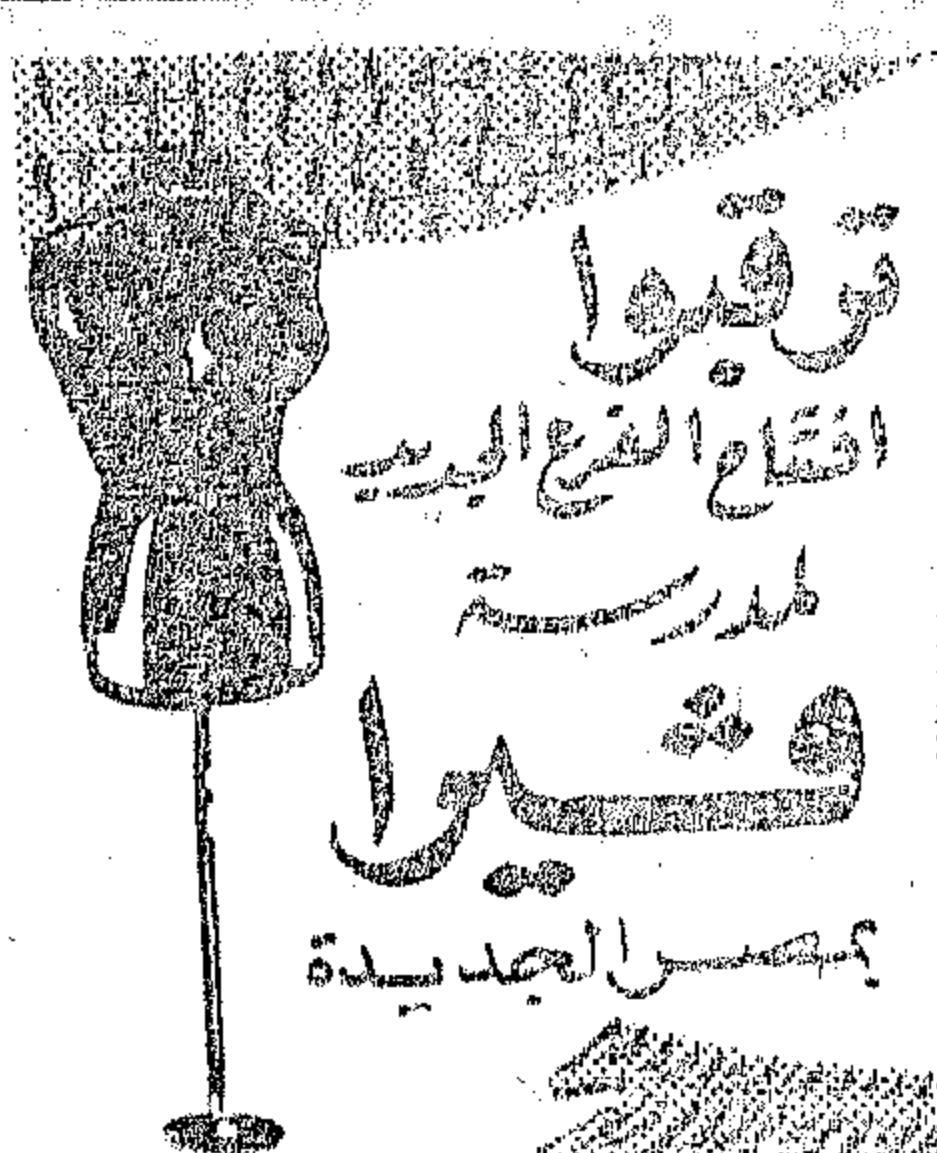 ترقبوا
افتتاح الفرع الجديد
لمدرسة
ڤيرا
بمصر الجديدة